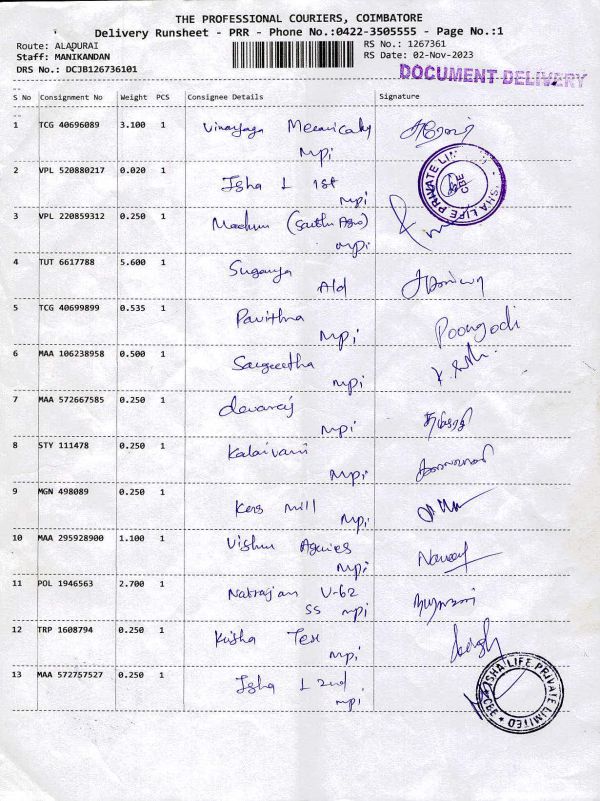 THE PROFESSIONAL COURIERS, COIMBATORE
Delivery Runsheet - PRR - Phone No.:0422-3505555 - Page No.:1
Route: ALADURAI RS No.: 1267361
Staff: MANIKANDAN RS Date: 02-Nov-2023
DRS No.: DCJB126736101
DOCUMENT DELIVERY
S No Consignment No Weight PCS Consignee Details Signature
1 TCG 40696089 3.100 1 Vinayaga
mpi
2 VPL 520880217 0.020 1 Isha L 1st
mpi
3 VPL 220859312 0.250 1
mpi
4 TUT 6617788 5.600 1 Suganya
Ald
5 TCG 40699899 0.535 1 Pavithra
mpi Poongodi
6 MAA 106238958 0.500 1 Sangeetha
mpi
7 MAA 572667585 0.250 1 devaraj
mpi
8 STY 111478 0.250 1 Kalaivani
mpi
9 MGN 498089 0.250 1 Kers mill
mpi
10 MAA 295928900 1.100 1 Vishnu
mpi
11 POL 1946563 2.700 1 Natrajan U-62
SS mpi
12 TRP 1608794 0.250 1 Tex
mpi
13 MAA 572757527 0.250 1 Isha L 2nd
mpi
ISHA LIFE PRIVATE LIMITED
CBE
ISHA LIFE PRIVATE LIMITED
CBE